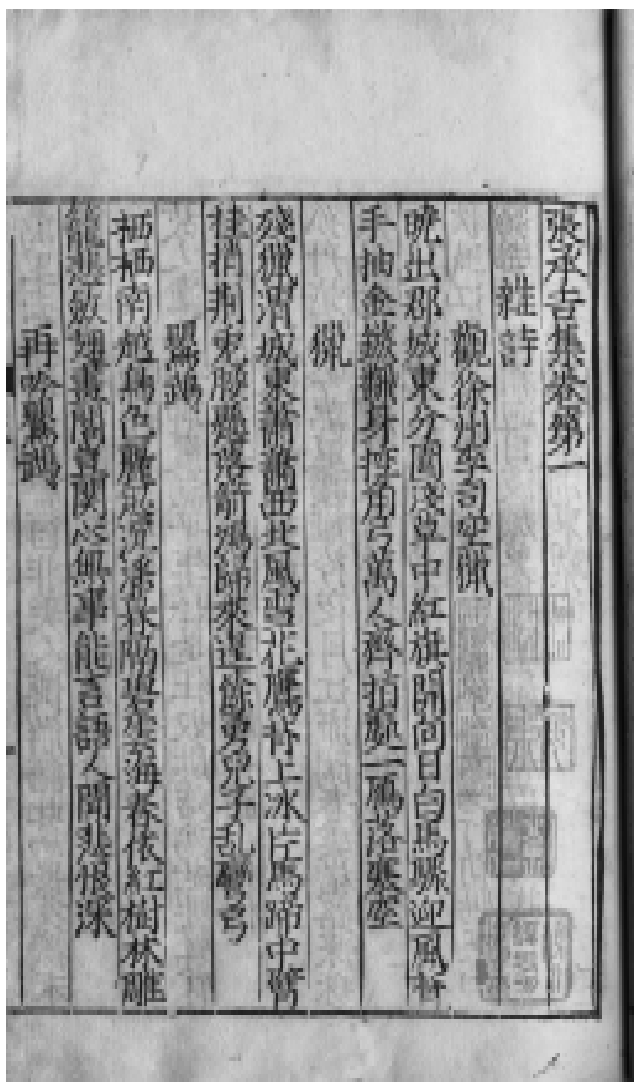 張承吉集卷第一
雜詩
觀徐州李司空獵
曉出郡城東分圍淺草中紅旗開向日白馬驟迎風背
手抽金鏃翻身控角弓萬人齊指處一鴈落寒空
獵
殘獵渭城東蕭蕭西北風雪花鷹背上冰片馬蹄中臂
挂捎荆兎腰懸落箭鴻歸來逞餘勇兒子乱彎弓
鸚鵡
栖栖南越鳥色麗思沉滛林隔碧雲海春依紅樹林雕
籠悲斂翅畫閣豈関心無事能言語人聞悲恨深
再吟鸚鵡